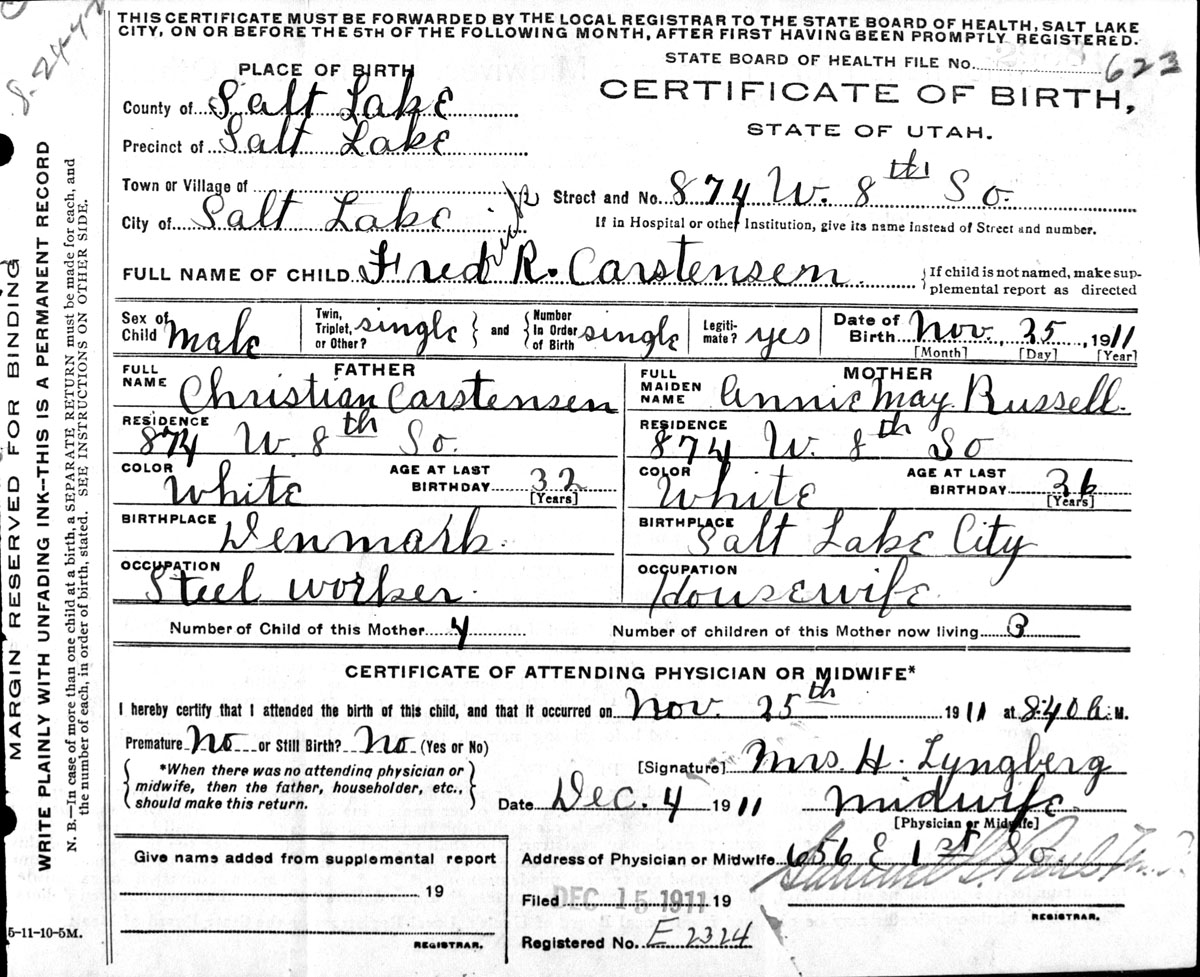 8-24-42
THIS CERTIFICATE MUST BE FORWARDED BY THE LOCAL REGISTRAR TO THE STATE BOARD OF HEALTH, SALT LAKE
CITY, ON OR BEFORE THE 5TH OF THE FOLLOWING MONTH, AFTER FIRST HAVING BEEN PROMPTLY REGISTERED.
STATE BOARD OF HEALTH FILE No. 623
PLACE OF BIRTH
CERTIFICATE OF BIRTH,
STATE OF UTAH.
County of Salt Lake
Precinct of Salt Lake
Town or Village of
Street and No. 874 W. 8th So.
City of Salt Lake
If in Hospital or other Institution, give its name instead of Street and number.
FULL NAME OF CHILD Fred R. Carstensen
{If child is not named, make sup-
plemental report as directed
Sex of Child male
Twin, Triplet, or Other? single } and { Number In Order of Birth single
Legiti-mate? yes
Date of Birth Nov. 25, 1911
[Month] [Day] [Year]
FATHER
FULL NAME Christian Carstensen
RESIDENCE
874 W. 8th So.
COLOR White
AGE AT LAST BIRTHDAY 32
[Years]
BIRTHPLACE Denmark.
OCCUPATION
Steel worker.
MOTHER
FULL MAIDEN NAME Annie May Russell.
RESIDENCE
874 W. 8th So
COLOR White
AGE AT LAST BIRTHDAY 26
[Years]
BIRTHPLACE Salt Lake City
OCCUPATION
Housewife.
Number of Child of this Mother 4
Number of children of this Mother now living 3
CERTIFICATE OF ATTENDING PHYSICIAN OR MIDWIFE*
I hereby certify that I attended the birth of this child, and that it occurred on Nov. 25th 1911 at 8:40 M.
Premature No or Still Birth? No (Yes or No)
{ *When there was no attending physician or
midwife, then the father, householder, etc.,
should make this return. }
[Signature] Mrs. H. Lyngberg
Date Dec. 4 1911 midwife.
[Physician or Midwife]
Give name added from supplemental report
19
REGISTRAR.
Address of Physician or Midwife 656 E 1st So
Filed DEC 15 1911 19
REGISTRAR.
Registered No. E 2324
5-11-10-5M.
MARGIN RESERVED FOR BINDING
WRITE PLAINLY WITH UNFADING INK--THIS IS A PERMANENT RECORD
N. B.—In case of more than one child at a birth, a SEPARATE RETURN must be made for each, and
the number of each, in order of birth, stated. SEE INSTRUCTIONS ON OTHER SIDE.